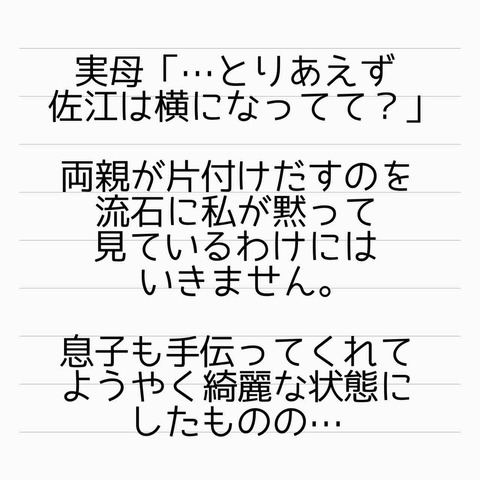 実母「…とりあえず
佐江は横になってて？」
両親が片付けだすのを
流石に私が黙って
見ているわけには
いきません。
息子も手伝ってくれて
ようやく綺麗な状態に
したものの…